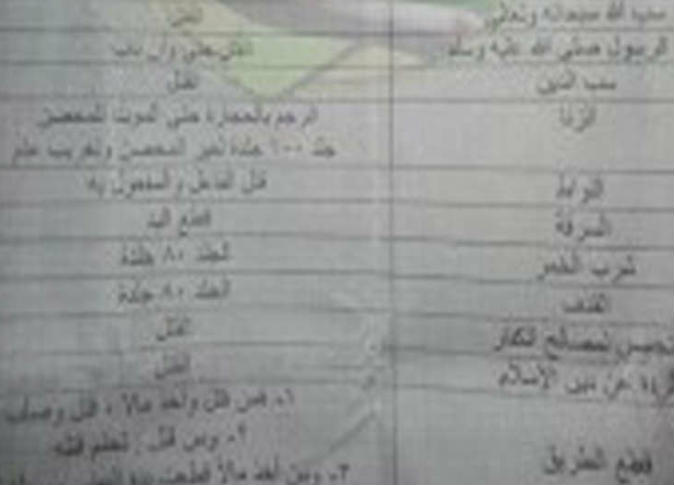 سب الله سبحانه وتعالى القتل
الرسول صلى الله عليه وسلم القتل حتى وإن تاب
سب الدين القتل
الزنا الرجم بالحجارة حتى الموت للمحصن
جلد ١٠٠ جلدة لغير المحصن وتغريب عام
اللواط قتل الفاعل والمفعول به
السرقة قطع اليد
شرب الخمر الجلد ٨٠ جلدة
القذف الجلد ٨٠ جلدة
تجسس لمصالح الكفار القتل
ردة عن دين الإسلام القتل
قطع الطريق ١- فمن قتل وأخذ مالا ، قتل وصلب
٢- ومن قتل ، تحتم قتله
٣- ومن أخذ مالا قطعت